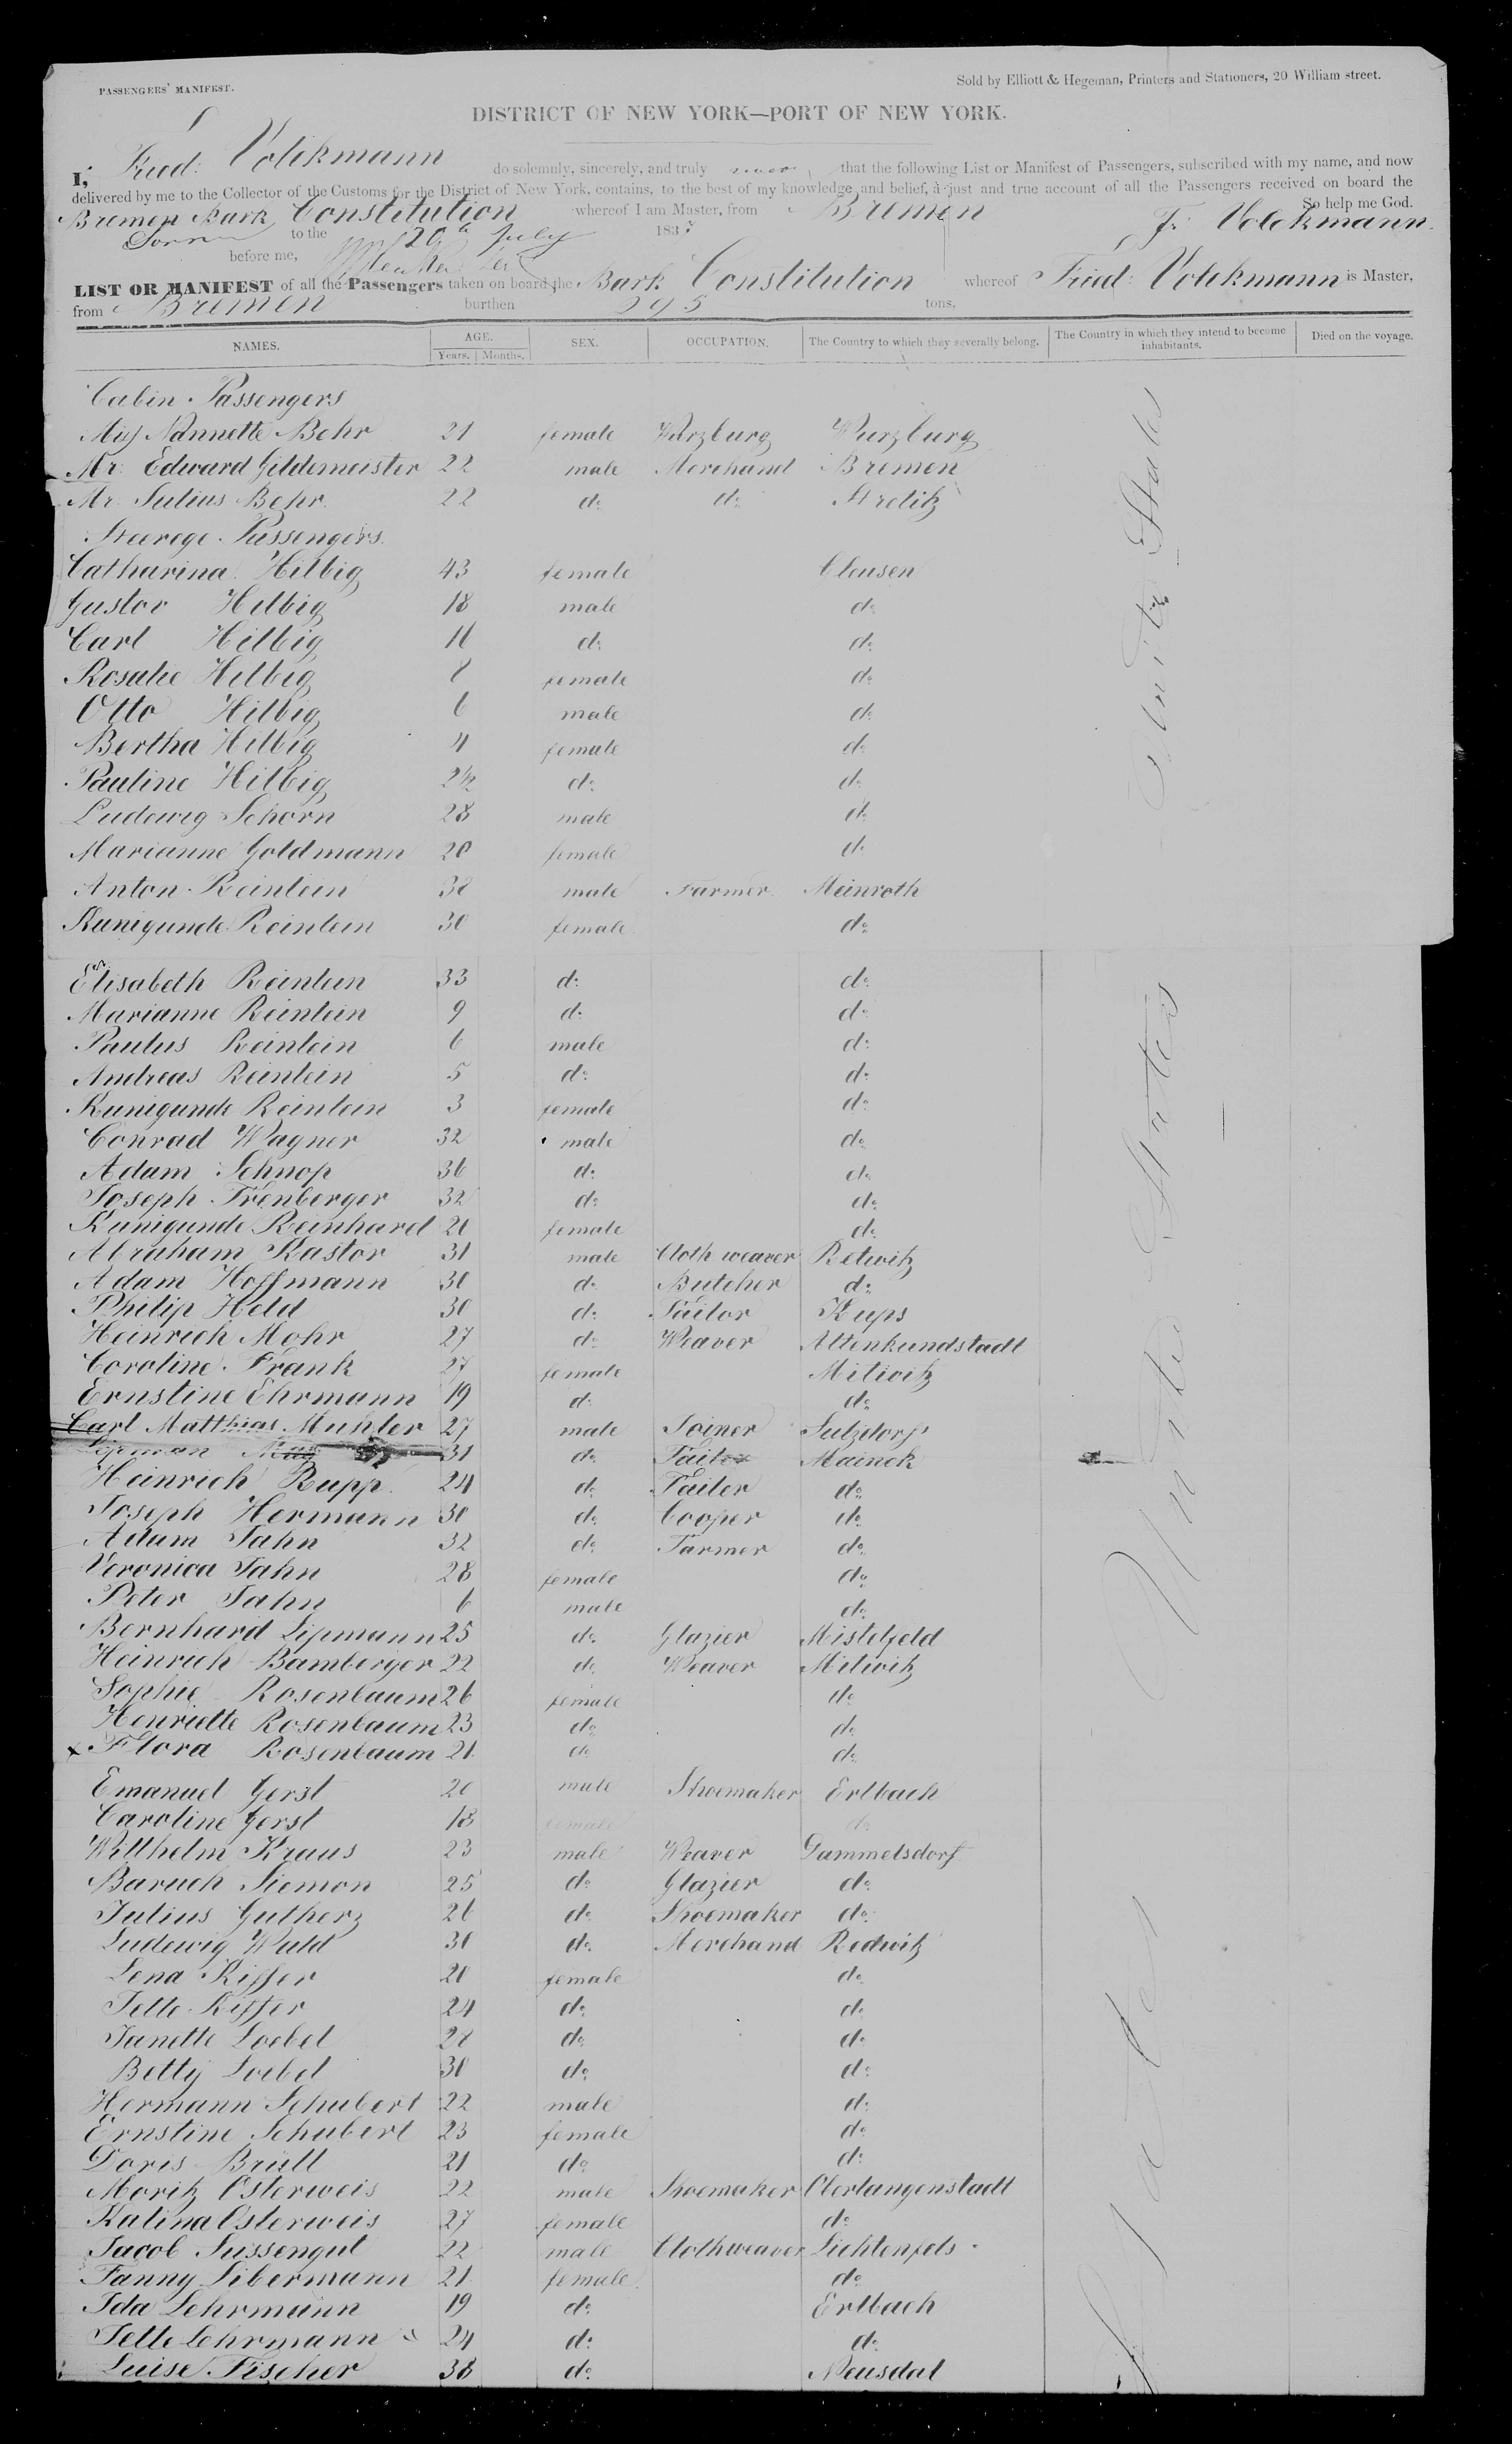 PASSENGERS' MANIFEST.
Sold by Elliott & Hegeman, Printers and Stationers, 20 William street.
DISTRICT OF NEW YORK—PORT OF NEW YORK.
I, Fried: Volckmann do solemnly, sincerely, and truly swear, that the following List or Manifest of Passengers, subscribed with my name, and now
delivered by me to the Collector of the Customs for the District of New York, contains, to the best of my knowledge and belief, a just and true account of all the Passengers received on board the
Bremen Bark Constitution whereof I am Master, from Bremen So help me God.
Sworn to the 20th July 183 Fr. Volckmann.
before me,
LIST OR MANIFEST of all the Passengers taken on board the Bark Constitution whereof Fried: Volckmann is Master,
from Bremen burthen 295 tons,
NAMES. AGE. Years. Months. SEX. OCCUPATION. The Country to which they severally belong. The Country in which they intend to become inhabitants. Died on the voyage.
Cabin Passengers
Miss Nannette Behr 21 female Wurzburg Wurzburg
Mr. Edward Gildemeister 22 male Merchand Bremen
Mr. Julius Behr. 22 do do Strelitz
Steerege Passengers.
Catharina Hilbig 43 female Clousen
Gustav Helbig 18 male do
Carl Hilbig 11 do do
Rosalie Helbig 8 female do
Otto Hilbig 6 male do
Bertha Helbig 4 female do
Pauline Hilbig 2½ do do
Ludewig Schorn 28 male do
Marianne Goldmann 20 female do
Anton Reinlein 38 male Farmer Meinroth
Kunigunde Reinlein 30 female do
Elisabeth Reinlein 33 do do
Marianne Reinlein 9 do do
Paulus Reinlein 6 male do
Andreas Reinlein 5 do do
Kunigunde Reinlein 3 female do
Conrad Wagner 32 male do
Adam Schnop 36 do do
Joseph Trenberger 32 do do
Kunigunde Reinhard 20 female do
Abraham Kastor 31 male Cloth weaver Retwitz
Adam Hoffmann 30 do Butcher do
Philip Held 30 do Tailor Kups
Heinrich Mohr 27 do Weaver Altenkundstadt
Caroline Frank 27 female Mitwitz
Ernstine Ehrmann 19 do do
Carl Matthias Muhler 27 male Joiner Sulzdorf
Lipman May 31 do Tailor Maineck
Heinrich Rupp 24 do Tailer do
Joseph Hermann 30 do Cooper do
Adam Jahn 32 do Farmer do
Veronica Jahn 28 female do
Peter Jahn 6 male do
Bernhard Lipmann 25 do Glazier Mistelfeld
Heinrich Bamberger 22 do Weaver Mitwitz
Sophie Rosenbaum 26 female do
Henriette Rosenbaum 23 do do
x Flora Rosenbaum 21 do do
Emanuel Gerst 20 male Shoemaker Erlbach
Caroline Gerst 18 female do
Willhelm Kraus 23 male Weaver Gammelsdorf
Baruch Siemon 25 do Glazier do
Julius Gutherz 26 do Shoemaker do
Ludewig Wald 30 do Merchand Redwitz
Lena Kisser 20 female do
Jette Kisser 24 do do
Janette Loebel 28 do do
Betty Loebel 30 do do
Hermann Schubert 22 male do
Ernstine Schubert 23 female do
Doris Brüll 21 do do
Moritz Osterweis 22 male Shoemaker Oberlangenstadt
Katina Osterweis 27 female do
Jacob Sussengut 22 male Clothweaver Lichtenfels
Fanny Libermann 21 female do
Ida Lehrmann 19 do Erlbach
Jette Lehrmann 24 do do
Luise Fischer 38 do Neusdal
United States
United States
States